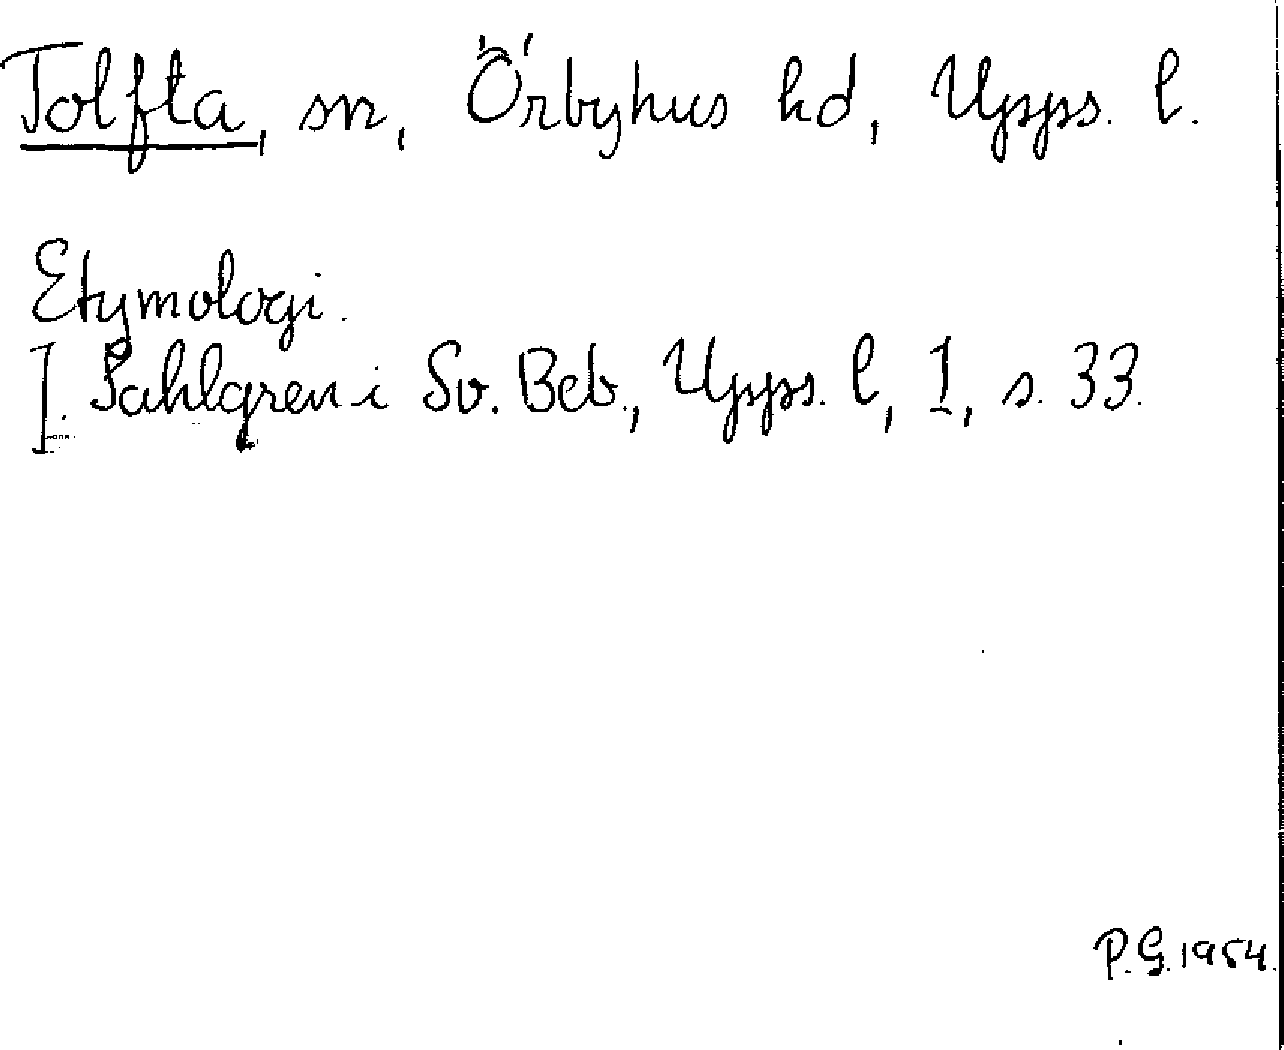 Tolfta, sn, Örbyhus hd, Upps. l.
Etymologi.
J. Sahlgren i Sv. Beb., Upps. l, 1, s. 33.
P.G. 1954.